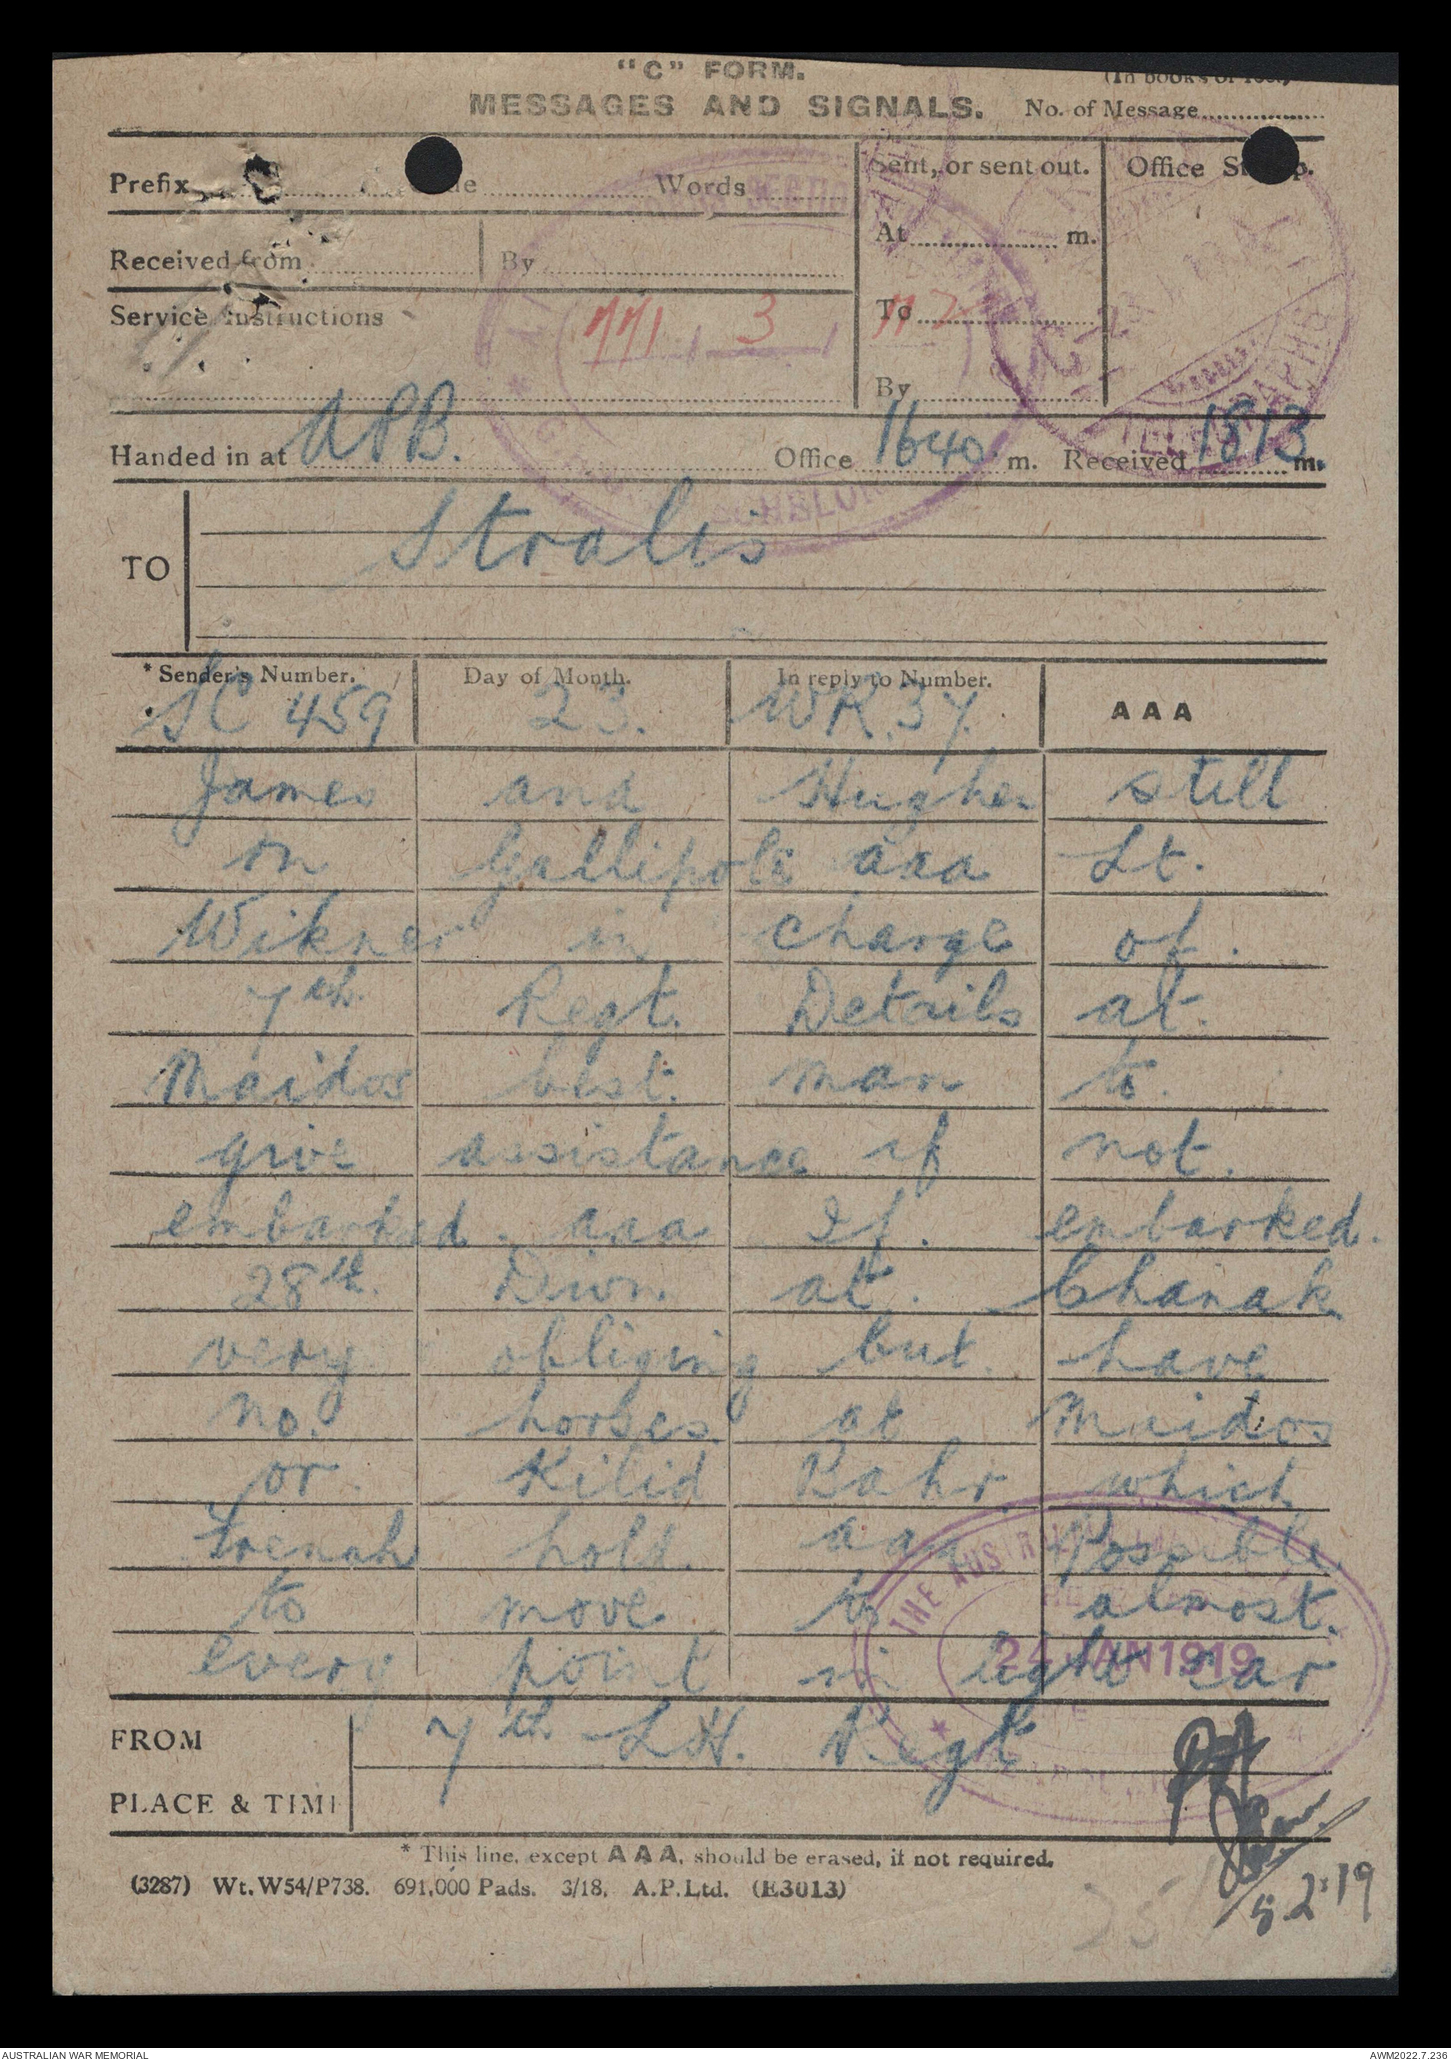 "C" FORM.
MESSAGES AND SIGNALS. No. of Message
Prefix Words
Sent, or sent out. Office
At m.
Received from By
Service Instructions
771 3
To 772
By
Handed in at APB. Office 1640 m. Received 1813 m.
TO Stralis
* Sender's Number. Day of Month. In reply to Number. AAA
SC 459 23. WR.37.
James and Hughes still
on Gallipoli aaa Lt.
Wikner in charge of.
7th. Regt. Details at.
Maidos best. man to.
give assistance if not.
embarked. aaa If. embarked.
28th. Divn. at. Chanak
very obliging but. have
no. horses at Maidos
or Kilid Bahr which
French hold. aaa Possible
to move to almost.
every point in light car
THE AUSTRALIAN
24 JAN 1919
FROM 7th L.H. Regt
PLACE & TIME
* This line, except AAA, should be erased, if not required.
(3287) Wt. W54/P738. 691,000 Pads. 3/18. A.P.Ltd. (E3013)
8.2.19
AUSTRALIAN WAR MEMORIAL AWM2022.7.236